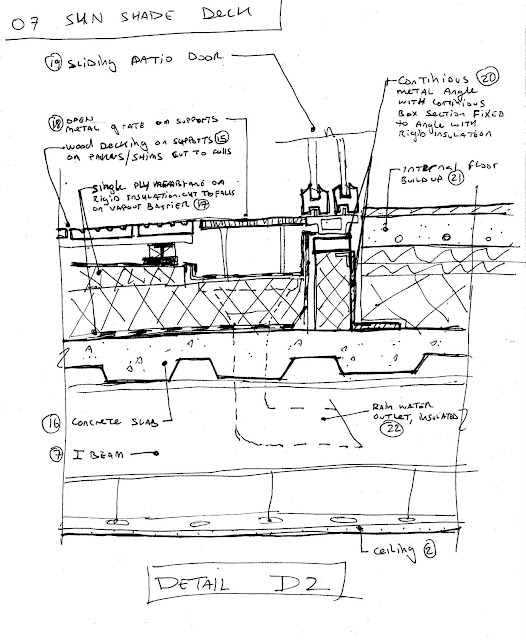 07 SUN SHADE DECK
19 SLIDING PATIO DOOR
CONTINIOUS 20
METAL ANGLE
WITH CONTINIOUS
BOX SECTION FIXED
TO ANGLE WITH
RIGID INSULATION
18 OPEN
METAL GRATE ON SUPPORTS
WOOD DECKING ON SUPPORTS 15
ON PAVERS/SHIMS CUT TO FALLS
INTERNAL FLOOR
BUILDUP 21
SINGLE PLY MEMBRANE ON
RIGID INSULATION CUT TO FALLS
ON VAPOUR BARRIER 17
RAIN WATER
OUTLET, INSULATED
22
16 CONCRETE SLAB
7 I BEAM
CEILING 2
DETAIL D2